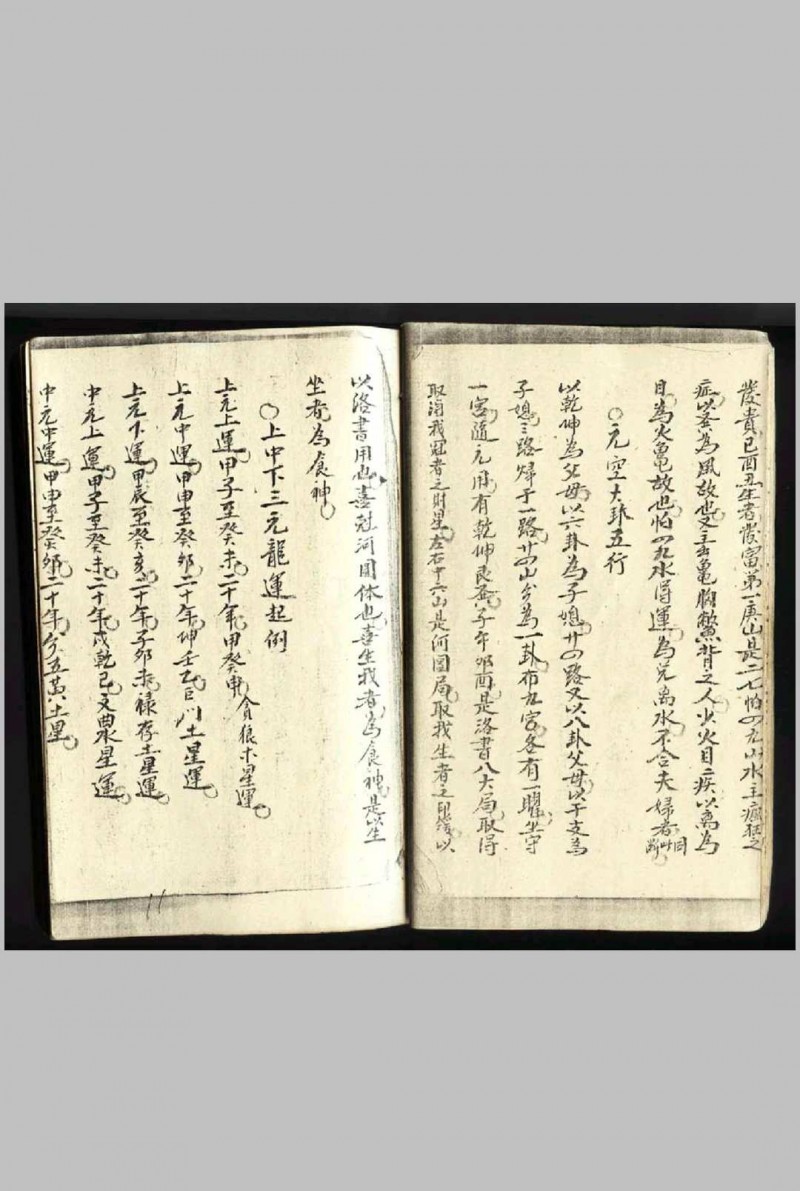 發貴巳酉丑生者發富第一庚山是二七怕四九山水主瘋狂之
症以巽為風故也又主出龜胸鱉背之人出火目之疾以離為
目為火龜故也怕四九水得運為兌離水不合夫婦者同此斷
○元空大卦五行
以乾坤為父母以六卦為子媳廿四路又以八卦父母以干支為
子媳三路歸于一路廿四山分為一卦布九宮各有一曜坐守
一宮隨元用有乾坤艮巽子午卯酉是洛書八大局取得
取消我冠者之財星左右十六山是河圖局取我生者之印綬以
以洛書用也喜冠河圖体也喜生我者為食神是以生
坐者為食神
○上中下三元龍運起例
上元上運甲子至癸未二十年甲癸申貪狼木星運
上元中運甲申至癸卯二十年坤壬乙巨门土星運
上元下運甲辰至癸亥二十年子卯未祿存土星運
中元上運甲子至癸未二十年戌乾巳文曲水星運
中元中運甲申至癸卯二十年分五黃土星
11